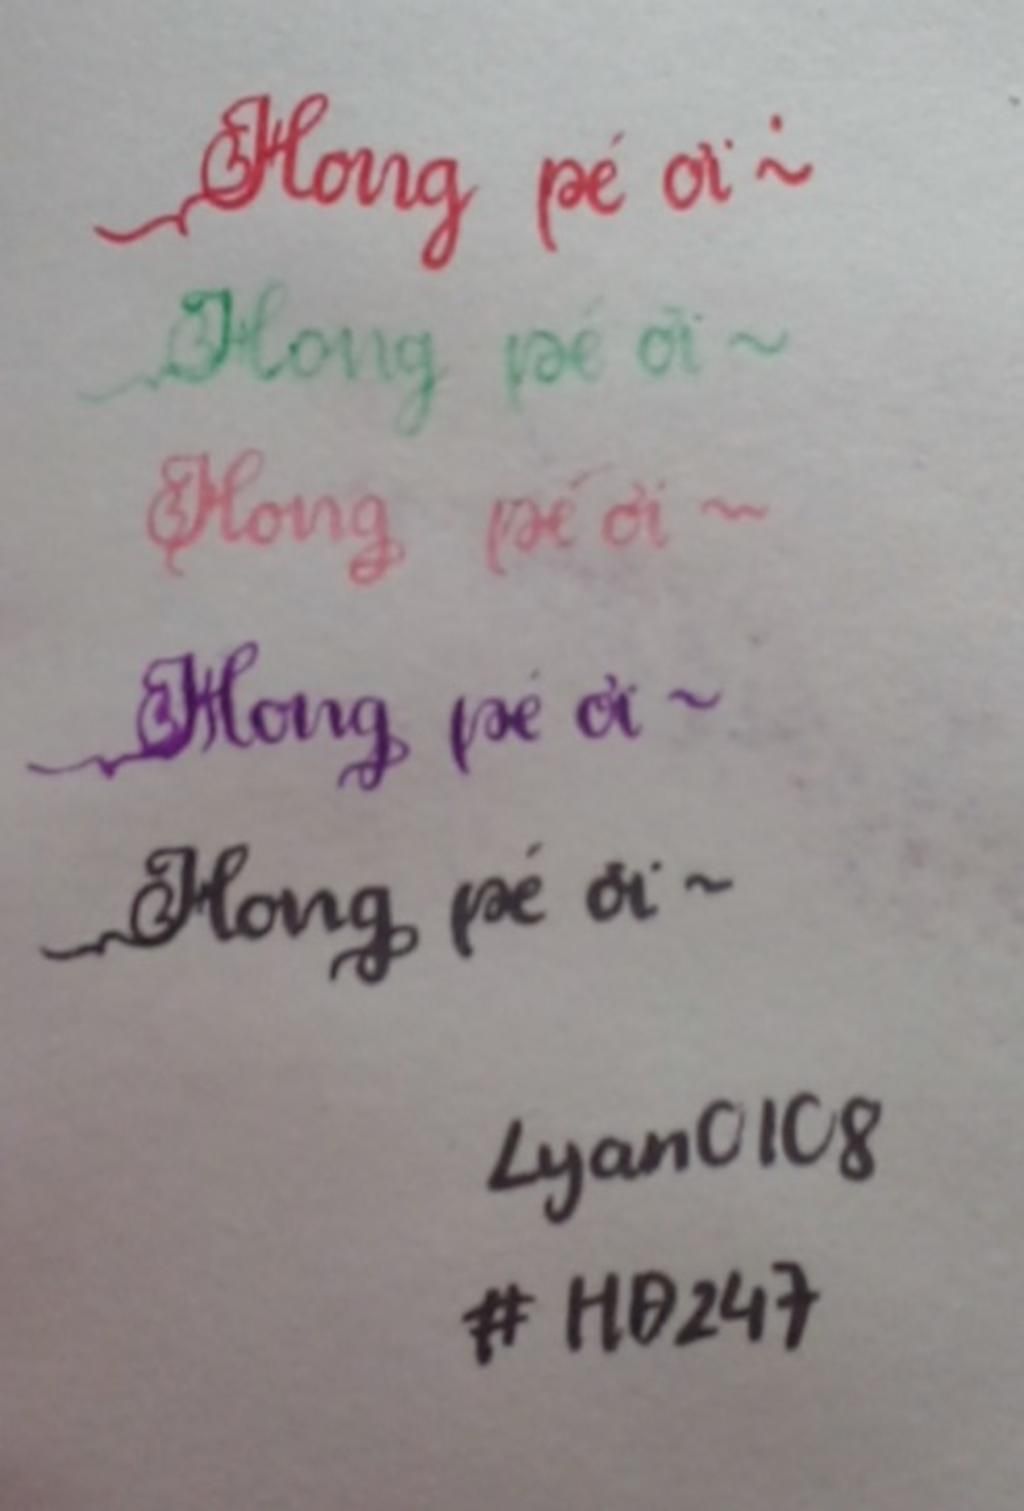 Hong pé ơi ~
Hong pé ơi ~
Hong pé ơi ~
Hong pé ơi ~
Hong pé ơi ~
Lyan0108
# HĐ247